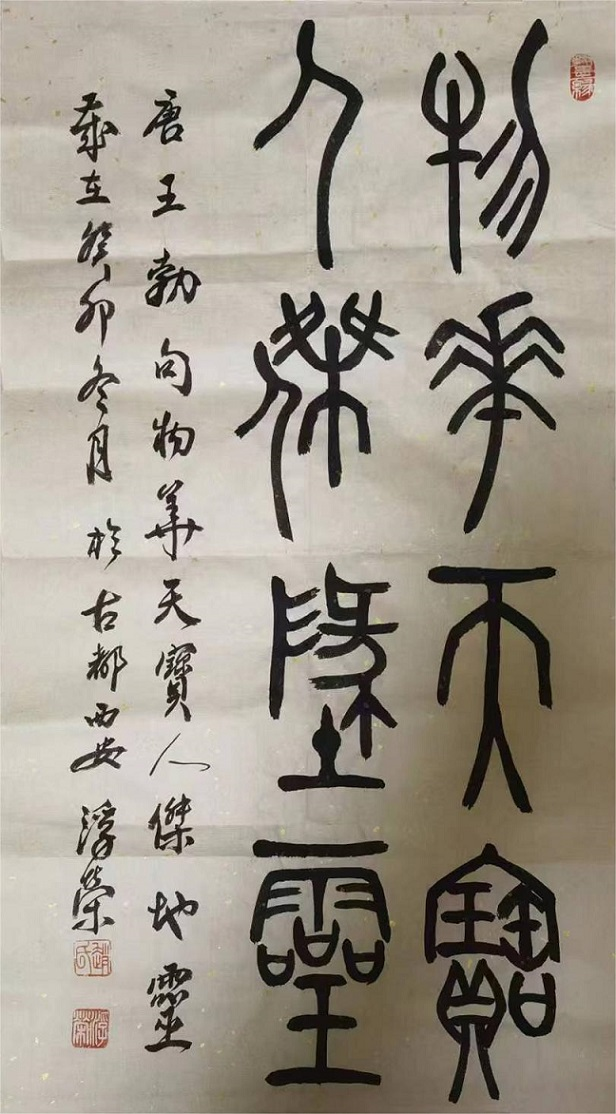 物華天寶
人傑地靈
唐王勃句物華天寶人傑地靈
歲在癸卯冬月於古都西安浮榮
趙氏
浮榮